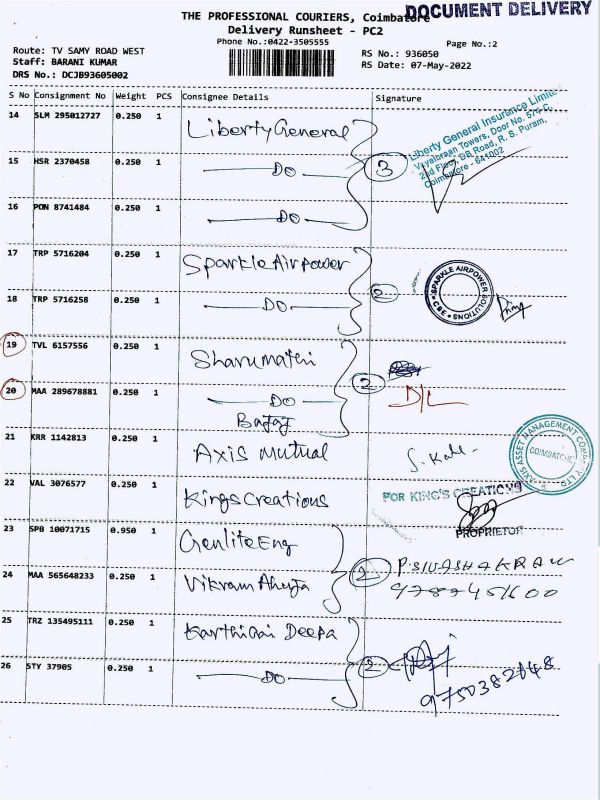 THE PROFESSIONAL COURIERS, Coimbatore
DOCUMENT DELIVERY
Delivery Runsheet - PC2
Phone No.:0422-3505555
Page No.:2
Route: TV SAMY ROAD WEST
RS No.: 936050
Staff: BARANI KUMAR
RS Date: 07-May-2022
DRS No.: DCJB93605002
S No Consignment No Weight PCS Consignee Details Signature
14 SLM 295012727 0.250 1 Liberty General
Liberty General Insurance Limited
Door No. 574-C,
2nd Floor, DB Road, R. S. Puram,
Coimbatore - 641002
15 HSR 2370458 0.250 1 DO 3
16 PON 8741484 0.250 1 DO
17 TRP 5716204 0.250 1 Sparkle Airpower
2
SPARKLE AIRPOWER SOLUTIONS
CBE
18 TRP 5716258 0.250 1 DO
19 TVL 6157556 0.250 1 Sharumathi
2
20 MAA 289678881 0.250 1 DO D/L
Bajaj
21 KRR 1142813 0.250 1 Axis Mutual
AXIS ASSET MANAGEMENT COMPANY LTD
COIMBATORE
22 VAL 3076577 0.250 1 Kings Creations
FOR KING'S CREATIONS
PROPRIETOR
23 SPB 10071715 0.950 1 Genlite Eng
2
24 MAA 565648233 0.250 1 Vikram Ahuja
25 TRZ 135495111 0.250 1 Karthigai Deepa
2
26 STY 37905 0.250 1 DO
9750382648